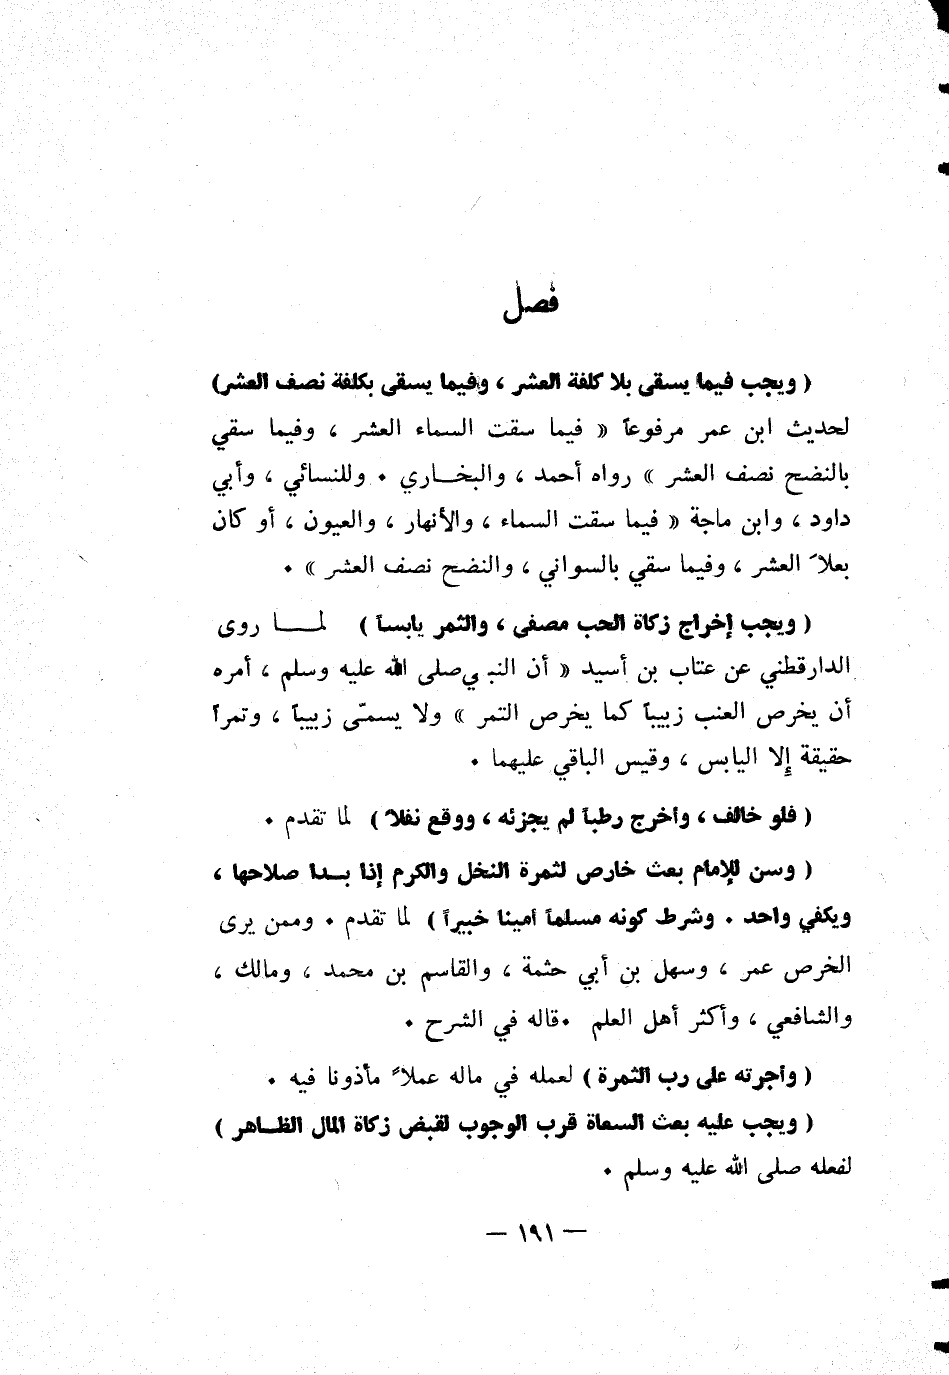 فصل
( ويجب فيما يسقى بلا كلفة العشر ، وفيما يسقى بكلفة نصف العشر)
لحديث ابن عمر مرفوعاً « فيما سقت السماء العشر ، وفيما سقي
بالنضح نصف العشر » رواه أحمد ، والبخــاري ٠ وللنسائي ، وأبي
داود ، وابن ماجة « فيما سقت السماء ، والأنهار ، والعيون ، أو كان
بعلاً العشر ، وفيما سقي بالسواني ، والنضح نصف العشر » ٠
( ويجب إخراج زكاة الحب مصفى ، والثمر يابساً ) لمـــا روى
الدارقطني عن عتاب بن أسيد « أن النبي صلى الله عليه وسلم ، أمره
أن يخرص العنب زبيباً كما يخرص التمر » ولا يسمّى زبيباً ، وتمراً
حقيقة إلا اليابس ، وقيس الباقي عليهما ٠
( فلو خالف ، وأخرج رطباً لم يجزئه ، ووقع نفلاً ) لما تقدم ٠
( وسن للإمام بعث خارص لثمرة النخل والكرم إذا بــدا صلاحها ،
ويكفي واحد ٠ وشرط كونه مسلماً أمينا خبيراً ) لما تقدم ٠ وممن يرى
الخرص عمر ، وسهل بن أبي حثمة ، والقاسم بن محمد ، ومالك ،
والشافعي ، وأكثر أهل العلم ٠قاله في الشرح ٠
( وأجرته على رب الثمرة ) لعمله في ماله عملاً مأذونا فيه ٠
( ويجب عليه بعث السعاة قرب الوجوب لقبض زكاة المال الظــاهر )
لفعله صلى الله عليه وسلم ٠
— ١٩١ —